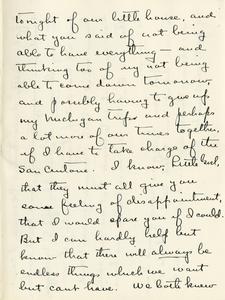 tonight of our little house, and
what you said of not being
able to have everything — and
thinking too of my not being
able to come down tomorrow,
and possibly having to give up
my Michigan trips and perhaps
a lot more of our times together,
if I have to take charge of the
San Antone. I know, Little Girl,
that they must all give you
some feeling of disappointment,
that I would spare you if I could.
But I can hardly help but
know that there will always be
endless things which we want
but cant have. We both knew